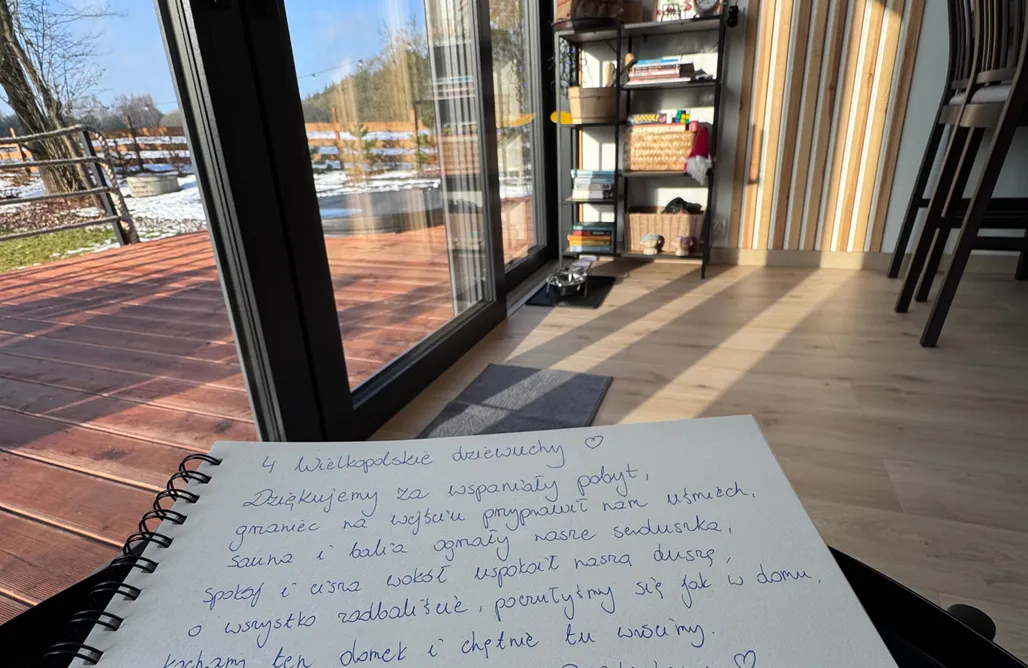 4 Wielkopolskie dziewuchy ♡
Dziękujemy za wspaniały pobyt,
grzaniec na wejściu przyprawił nam uśmiech,
sauna i balia ogrzały nasze serduszka,
spokój i cisza wokół uspokoił naszą duszę,
o wszystko zadbaliście, poczułyśmy się jak w domu.
kochamy ten domek i chętnie tu wrócimy.
♡